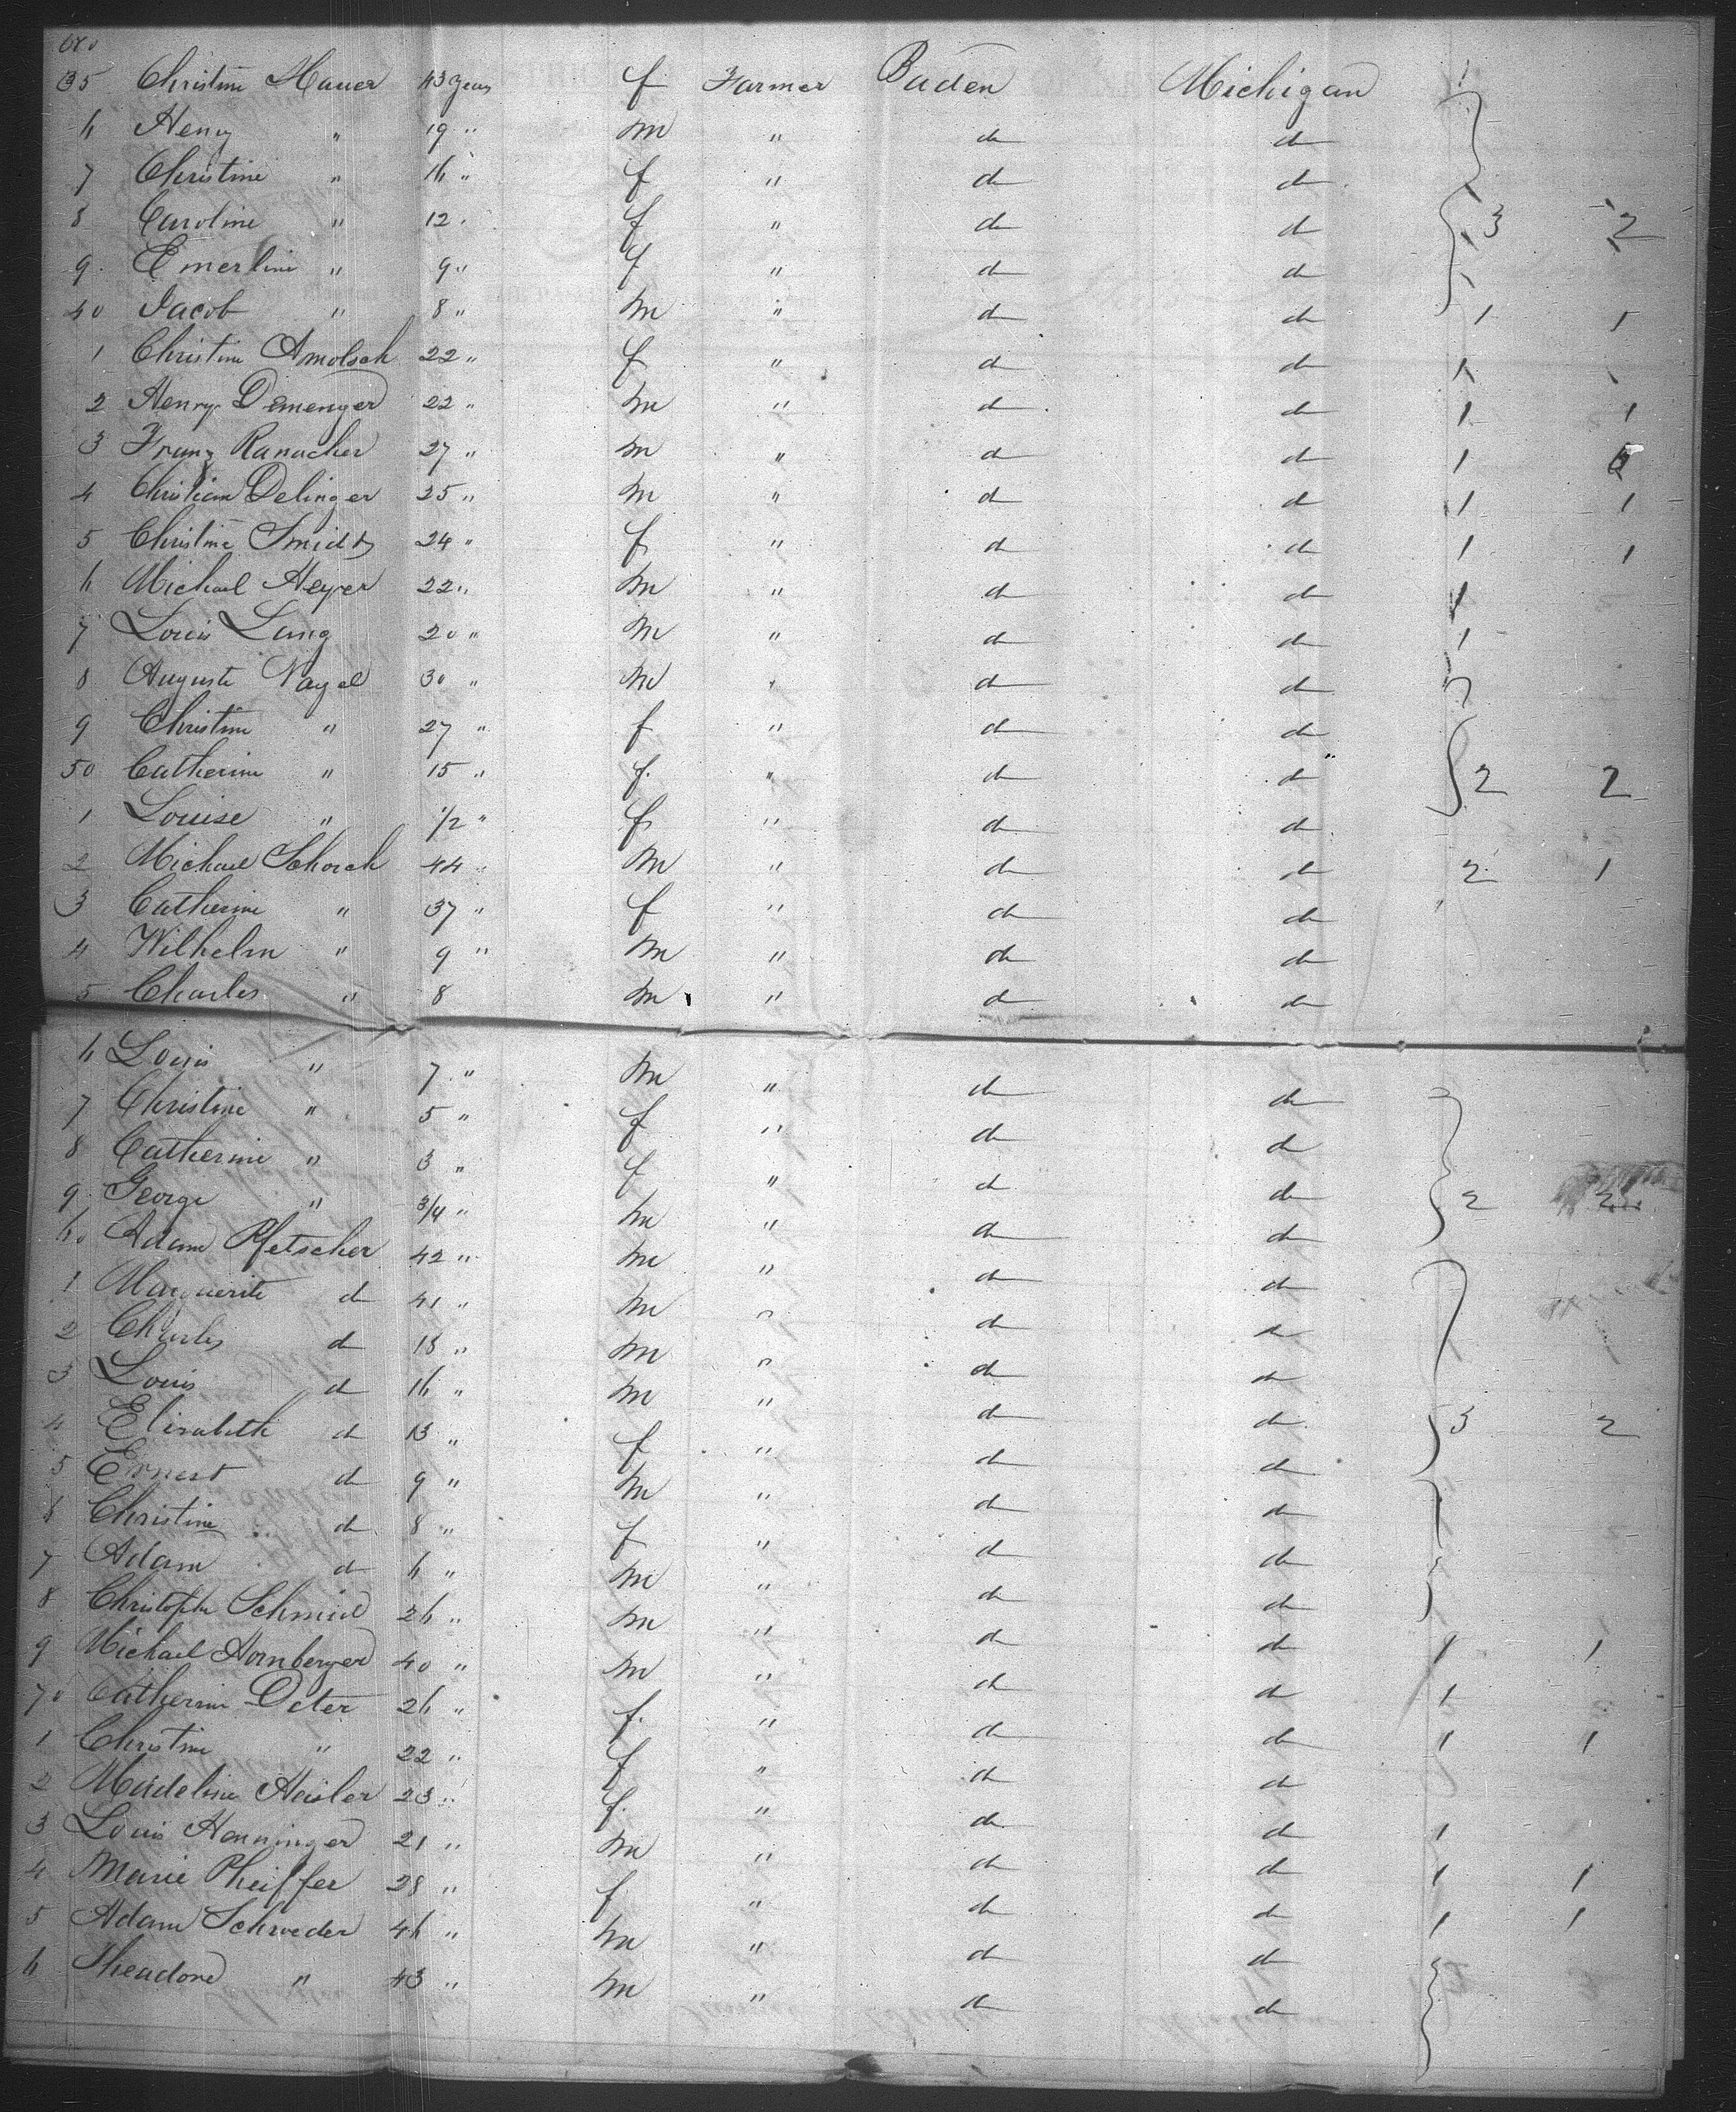 35 Christine Hauer 43 years f Farmer Baden Michigan 1
6 Henry " 19 " m " d d
7 Christine " 16 " f " d d
8 Caroline " 12 " f " d d 3 2
9 Emerline " 9 " f " d d
40 Jacob " 8 " m " d d 1 1
1 Christine Amolsch 22 " f " d d 1
2 Henry Dimenger 22 " m " d d 1 1
3 Franz Ranacher 27 " m " d d 1
4 Christian Delinger 25 " m " d d 1 1
5 Christine Smidt 24 " f " d d 1 1
6 Michael Heyer 22 " m " d d 1
7 Louis Lang 20 " m " d d 1
8 Auguste Nagel 30 " m " d d
9 Christine " 27 " f " d d
50 Catherine " 15 " f " d d 2 2
1 Louise " 1/2 " f " d d
2 Michael Schorch 44 " m " d d 2 1
3 Catherine " 37 " f " d d
4 Wilhelm " 9 " m " d d
5 Charles " 8 m " d d
6 Louis " 7 " m " d d
7 Christine " 5 " f " d d
8 Catherine " 3 " f " d d
9 George " 3/4 " m " d d 2 2
60 Adam Pfetscher 42 " m " d d
1 Marguerite d 41 " m " d d
2 Charles d 18 " m " d d
3 Louis d 16 " m " d d
4 Elisabeth d 13 " f " d d 3 2
5 Ernest d 9 " m " d d
6 Christine d 8 " f " d d
7 Adam d 6 " m " d d
8 Christophe Schmid 26 " m " d d 1 1
9 Michael Hornberger 40 " m " d d 1
70 Catherine Deter 26 " f " d d 1 1
1 Christine " 22 " f " d d
2 Madeline Heisler 23 " f " d d 1
3 Louis Henninger 21 " m " d d 1 1
4 Marie Pheiffer 28 " f " d d 1 1
5 Adam Schroeder 46 " m " d d
6 Theadore " 43 " m " d d